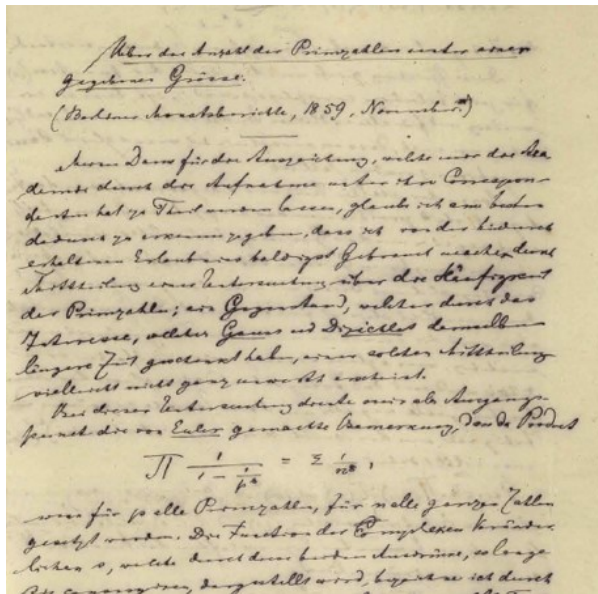 Ueber die Anzahl der Primzahlen unter einer
gegebenen Grösse.
(Berliner Monatsberichte, 1859, November.)
Meinen Dank für die Auszeichnung, welche mir die Aka-
demie durch die Aufnahme unter ihre Correspon-
denten hat zu Theil werden lassen, glaube ich am besten
dadurch zu erkennen zu geben, dass ich von der hierdurch
erhaltenen Erlaubniss baldigst Gebrauch mache durch
Mittheilung einer Untersuchung über die Häufigkeit
der Primzahlen; ein Gegenstand, welcher durch das
Interesse, welches Gauss und Dirichlet demselben
längere Zeit geschenkt haben, einer solchen Mittheilung
vielleicht nicht ganz unwerth erscheint.
Bei dieser Untersuchung diente mir als Ausgangs-
punkt die von Euler gemachte Bemerkung, dass das Product
∏ 1/(1 − 1/p^s) = Σ 1/n^s,
wenn für p alle Primzahlen, für n alle ganzen Zahlen
gesetzt werden. Die Function der complexen Veränder-
lichen s, welche durch diese beiden Ausdrücke, so lange
sie convergiren, dargestellt wird, bezeichne ich durch